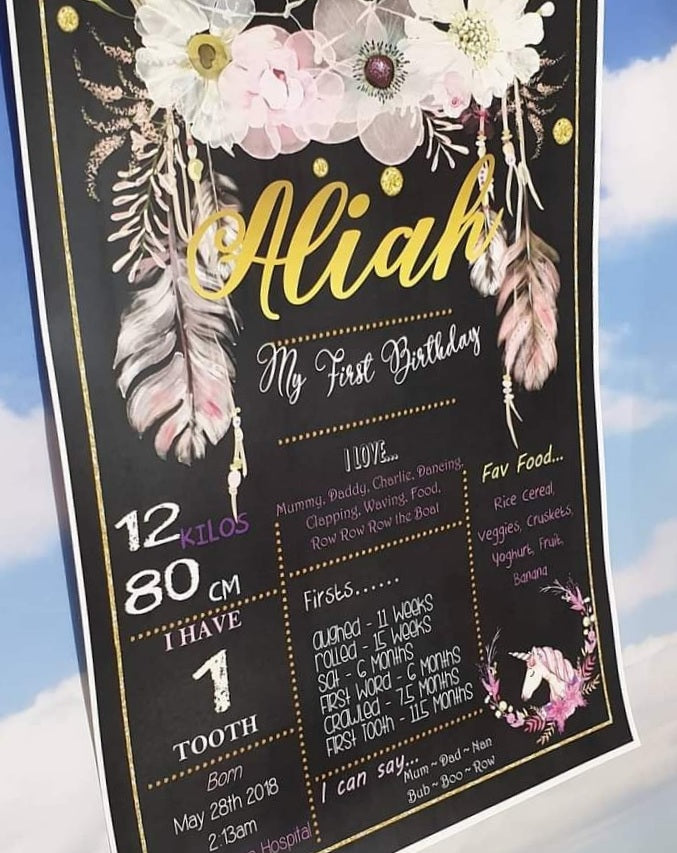 Aliah
My First Birthday
I LOVE...
Mummy, Daddy, Charlie, Dancing,
Clapping, Waving, Food,
Row Row Row the Boat
Fav Food...
Rice Cereal,
Veggies, Cruskets,
Yoghurt, Fruit,
Banana
12 KILOS
80 CM
I HAVE
1
TOOTH
Firsts......
aughed - 11 Weeks
rolled - 15 Weeks
Sat - 6 Months
First Word - 6 Months
Crawled - 7.5 Months
First Tooth - 11.5 Months
I can say...
Mum ~ Dad ~ Nan
Bub ~ Boo ~ Row
Born
May 28th 2018
2:13am
Hospital